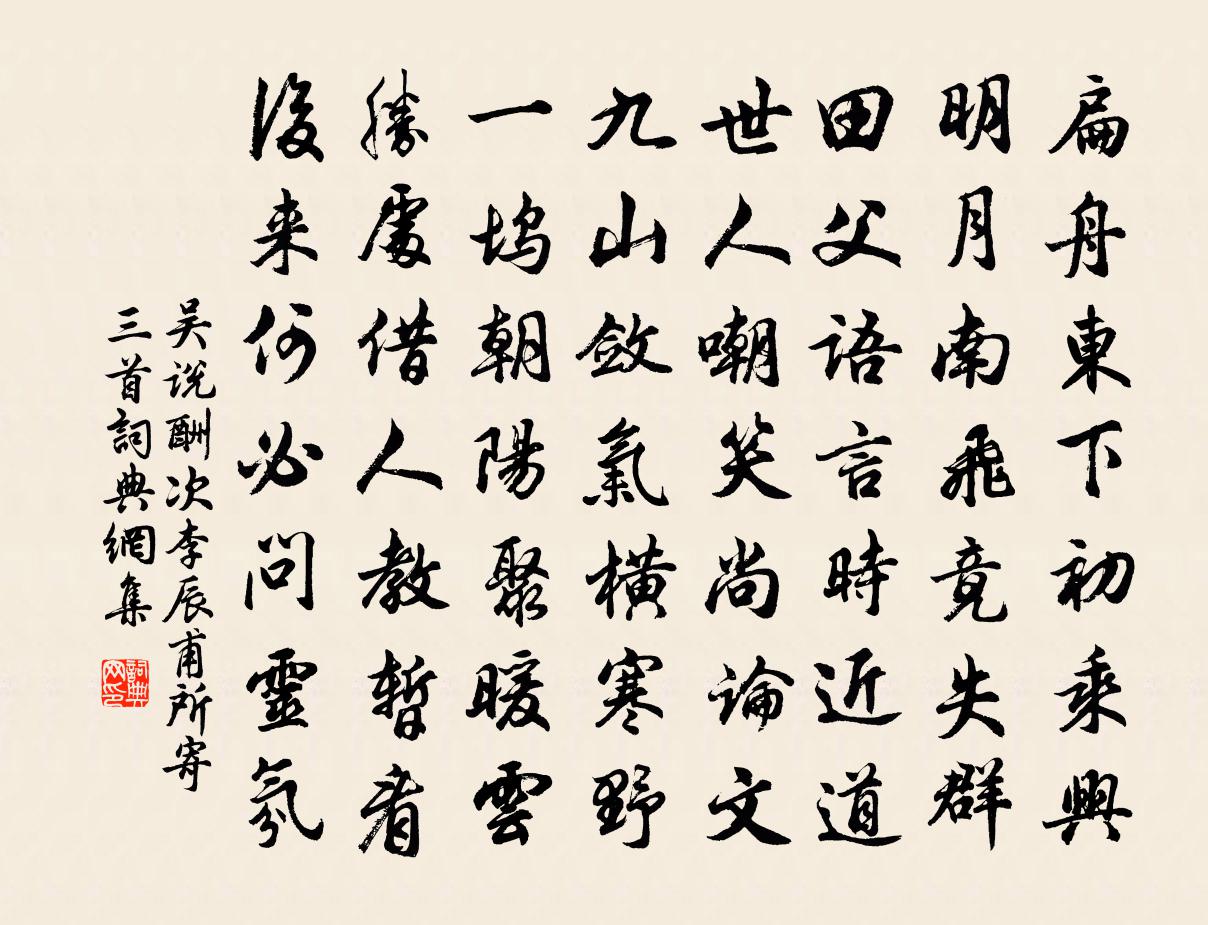 扁舟東下初乘興
明月南飛竟失群
田父語言時近道
世人嘲笑尚論文
九山斂氣橫寒野
一塢朝陽聚暖雲
勝處借人教暫看
後来何必問靈氛
吴説酬次李辰甫所寄
三首詞典網集
詞典网印